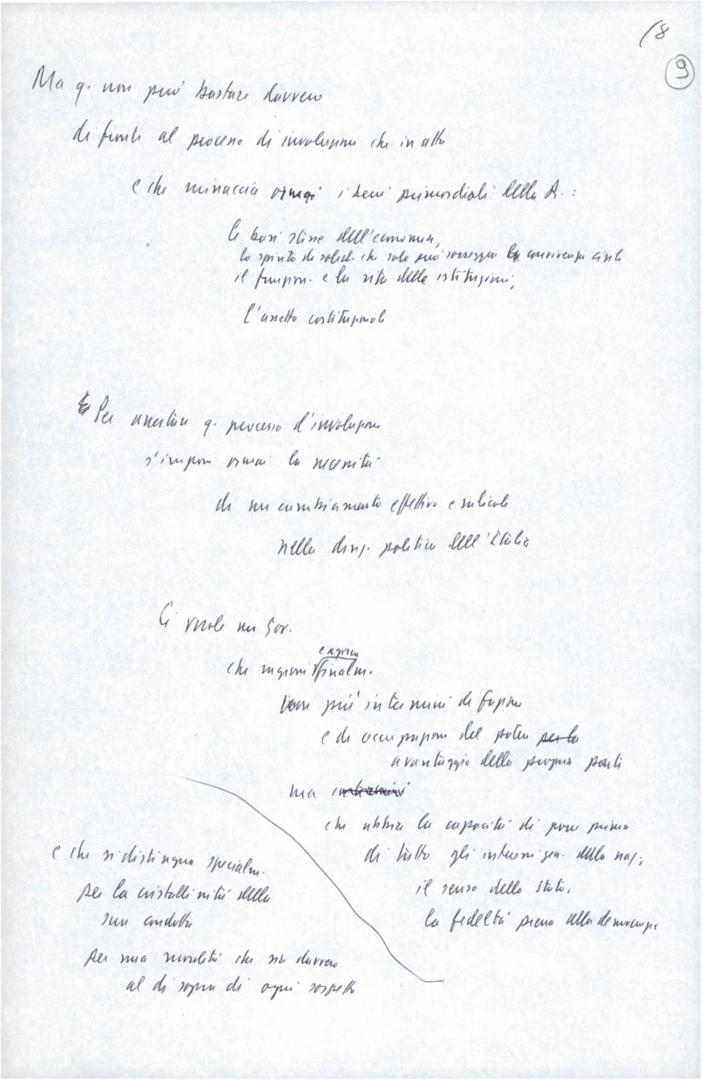 18
9
Ma q. non può bastare davvero
di fronte al processo di involuzione che in atto
e che minaccia ormai i beni primordiali della
le basi stesse dell'economia,
lo spirito di solid. che solo può sorreggere la convivenza civile
il funzion. e la vita delle istituzioni,
l'assetto costituzionale
Per arrestare q. processo d'involuzione
s'impone ormai la necessità
di un cambiamento effettivo e radicale
nella direz. politica dell'Italia
Ci vuole un Gov.
che ragioni e agisca finalm.
non più in termini di fazione
e di occupazione del potere per la
a vantaggio della propria parte
ma
che abbia la capacità di porre prima
di tutto gli interessi gen. della naz.,
il senso dello Stato,
la fedeltà piena alla democrazia
e che si distingua specialm.
per la cristallinità della
sua condotta
per una moralità che sia davvero
al di sopra di ogni sospetto